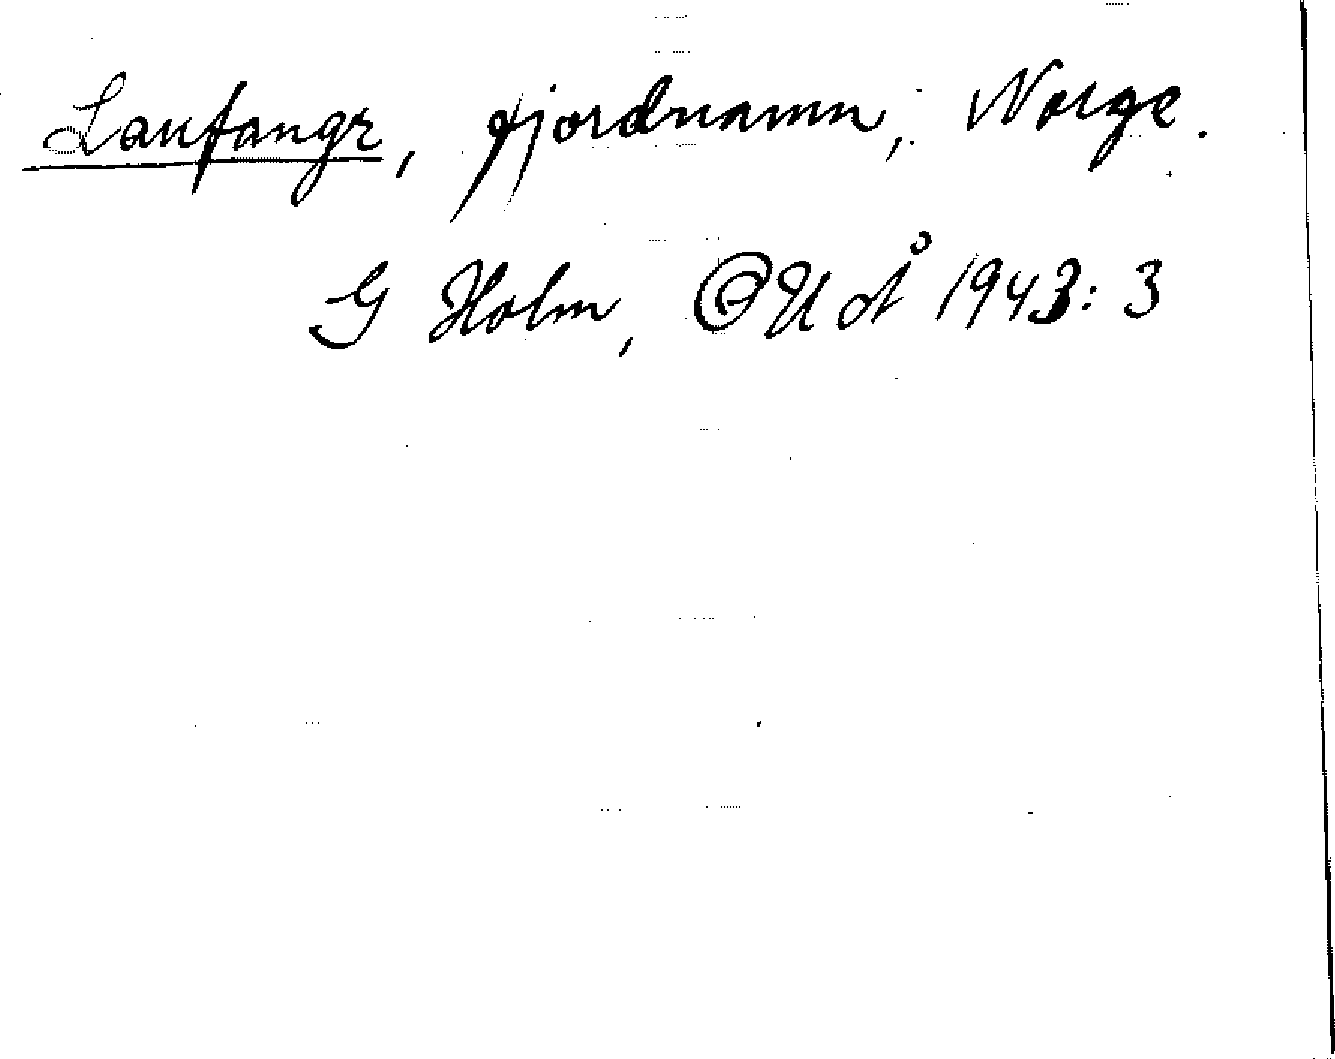 Laufangr, fjordnamn, Norge.
G Holm, UUÅ 1943: 3